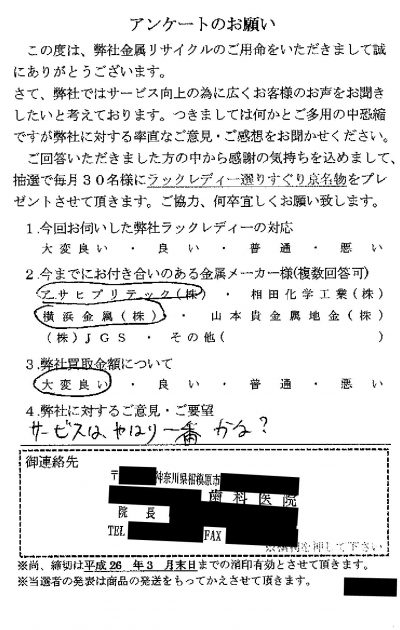 アンケートのお願い
この度は、弊社金属リサイクルのご用命をいただきまして誠
にありがとうございます。
さて、弊社ではサービス向上の為に広くお客様のお声をお聞き
したいと考えております。つきましては何かとご多用の中恐縮
ですが弊社に対する率直なご意見・ご感想をお聞かせください。
ご回答いただきました方の中から感謝の気持ちを込めまして、
抽選で毎月30名様にラックレディー選りすぐり京名物をプレ
ゼントさせて頂きます。ご協力、何卒宜しくお願い致します。
1.今回お伺いした弊社ラックレディーの対応
大変良い・良い・普通・悪い
2.今までにお付き合いのある金属メーカー様(複数回答可)
アサヒプリテック(株)・相田化学工業(株)
横浜金属(株)・山本貴金属地金(株)
(株)JGS・その他( )
3.弊社買取金額について
大変良い・良い・普通・悪い
4.弊社に対するご意見・ご要望
サービスは、やはり一番かな?
御連絡先
〒 神奈川県相模原市
歯科医院
院長
TEL FAX
を押して下さい
※尚、締切は平成26年3月末日までの消印有効とさせて頂きます。
※当選者の発表は商品の発送をもってかえさせて頂きます。